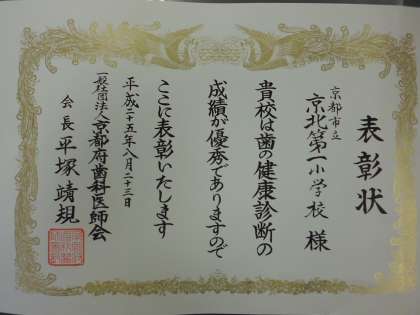 表彰状
京都市立
京北第一小学校 様
貴校は歯の健康診断の
成績が優秀でありますので
ここに表彰いたします
平成二十五年八月二十三日
一般社団法人京都府歯科医師会
会長 平塚靖規